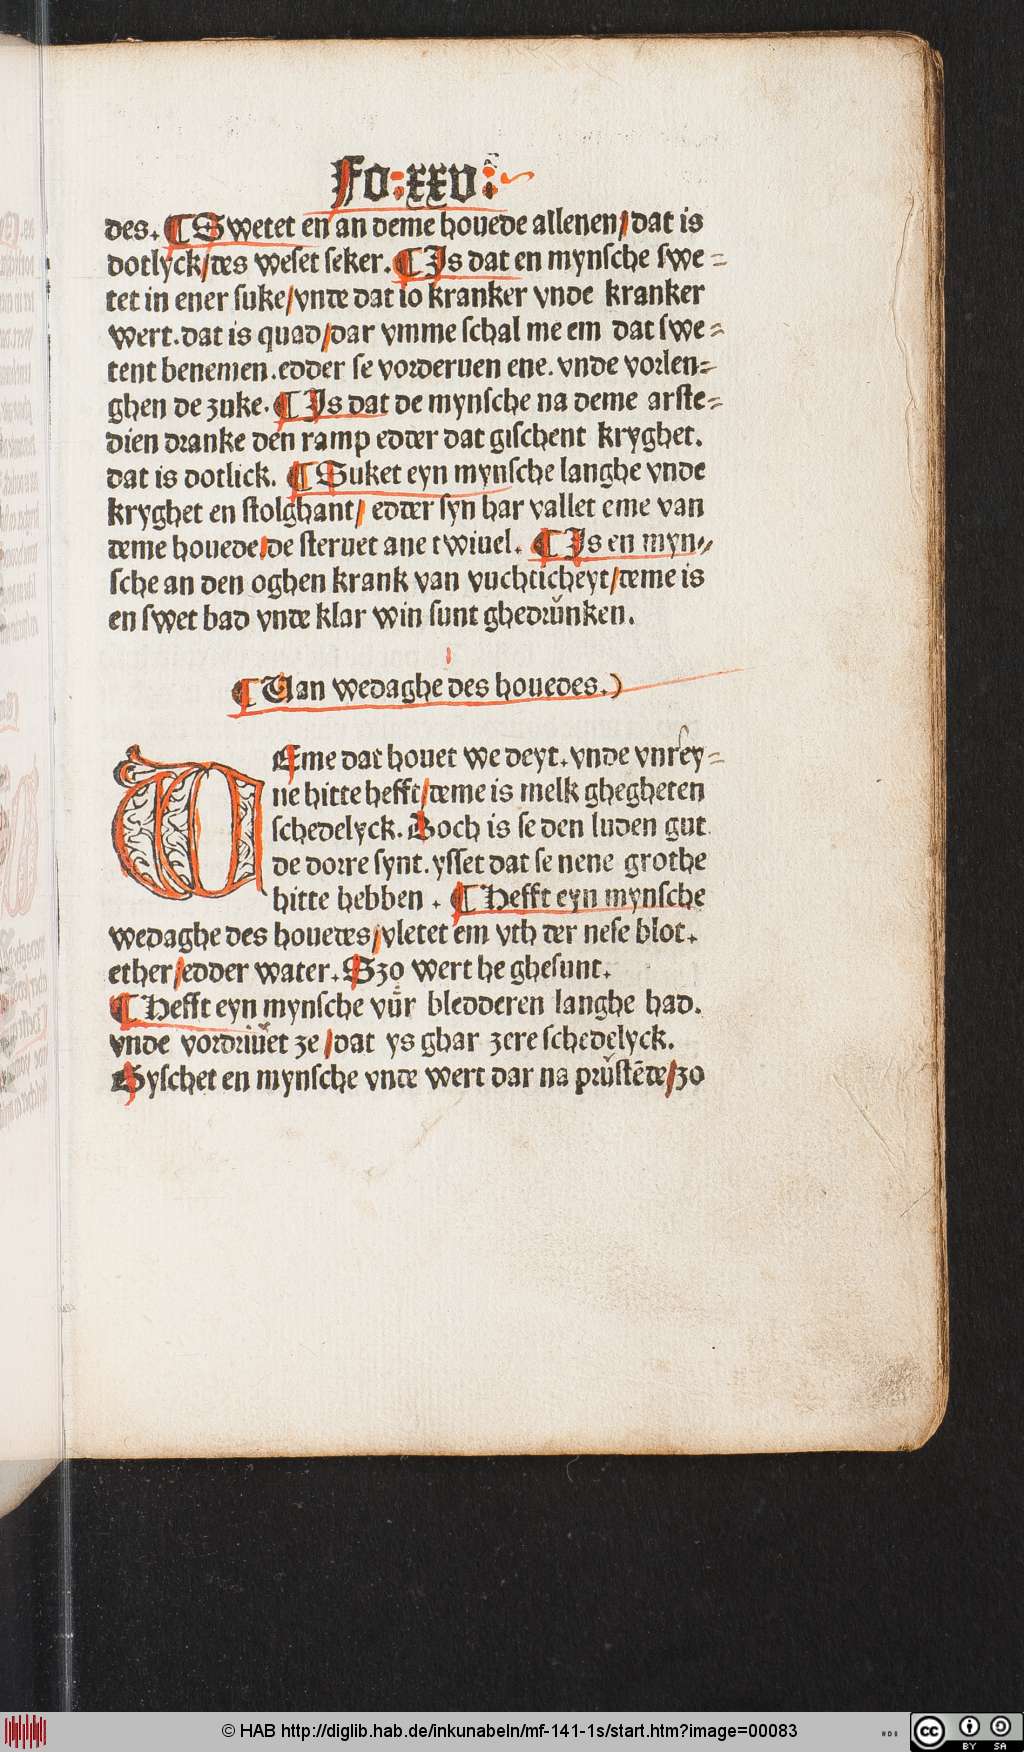 Fo:xxv:
des. ¶ Swetet en an deme houede allenen/dat is
dotlyck/des weset seker. ¶ Is dat en mynsche swe=
tet in ener suke/vnde dat io kranker vnde kranker
wert. dat is quad/dar vmme schal me em dat swe=
tent benemen. edder se vorderuen ene. vnde vorlen=
ghen de zuke. ¶ Is dat de mynsche na deme arste=
dien dranke den ramp edder dat gischent kryghet.
dat is dotlick. ¶ Suket eyn mynsche langhe vnde
kryghet en stolghant/ edder syn har vallet eme van
deme houede/de steruet ane twiuel. ¶ Is en myn=
sche an den oghen krank van vuchticheyt/deme is
en swet bad vnde klar win sunt ghedrůnken.
¶ Uan wedaghe des houedes.)
WEme dat houet we deyt. vnde vnrey=
ne hitte hefft/deme is melk ghegheten
schedelyck. Boch is se den luden gut
de dorre synt. ysset dat se nene grothe
hitte hebben. ¶ Hefft eyn mynsche
wedaghe des houedes/vletet em vth der nese blot.
ether/edder water. Szo wert he ghesunt.
¶ Hefft eyn mynsche vůr bledderen langhe had.
vnde vordriůet ze/dat ys ghar zere schedelyck.
Gyschet en mynsche vnde wert dar na průstēde/zo
© HAB http://diglib.hab.de/inkunabeln/mf-141-1s/start.htm?image=00083
cc BY SA